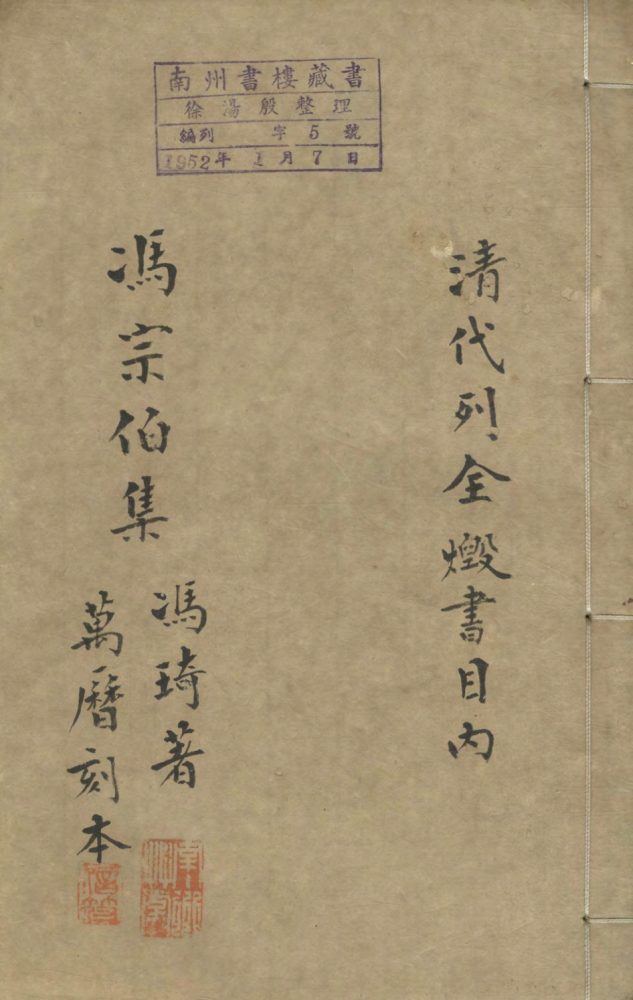 南州書樓藏書
徐湯殷整理
編列 字 5 號
1952年 1月 7日
清代列全燬書目内
馮宗伯集
馮琦著
萬曆刻本